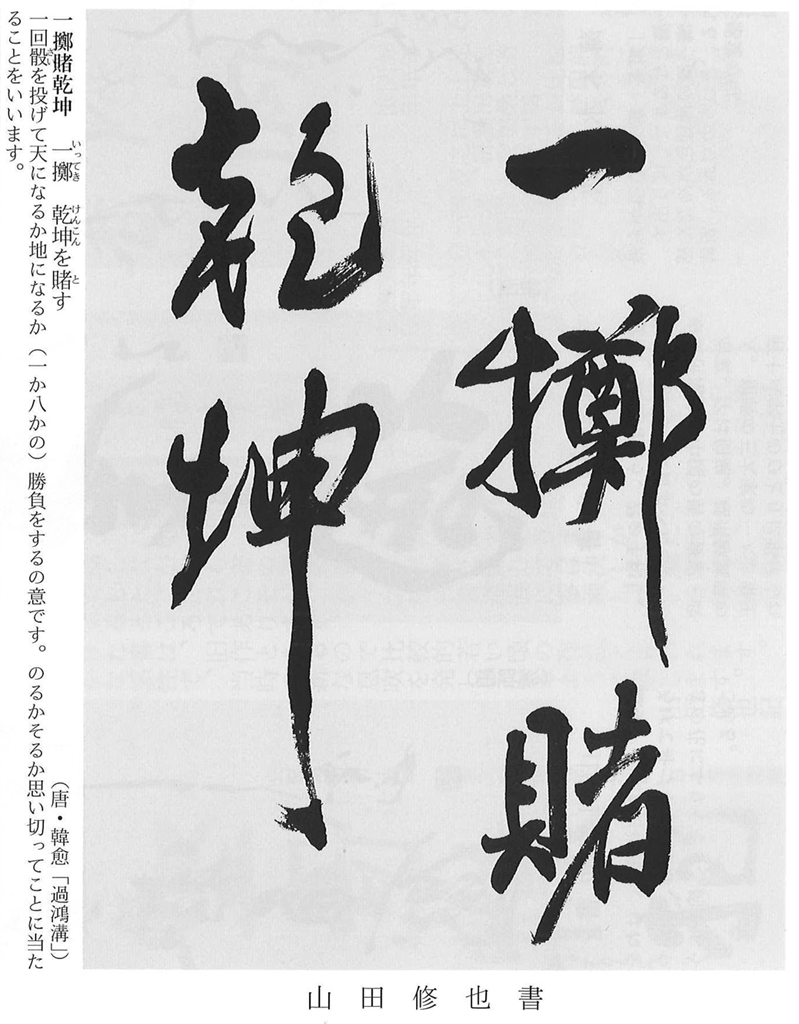 一擲賭
乾坤
一擲賭乾坤　一擲　乾坤を賭す　（唐・韓愈「過鴻溝」）
いってき　けんこん　と
一回骰を投げて天になるか地になるか（一か八かの）勝負をするの意です。のるかそるか思い切ってことに当た
さい
ることをいいます。
山田修也書